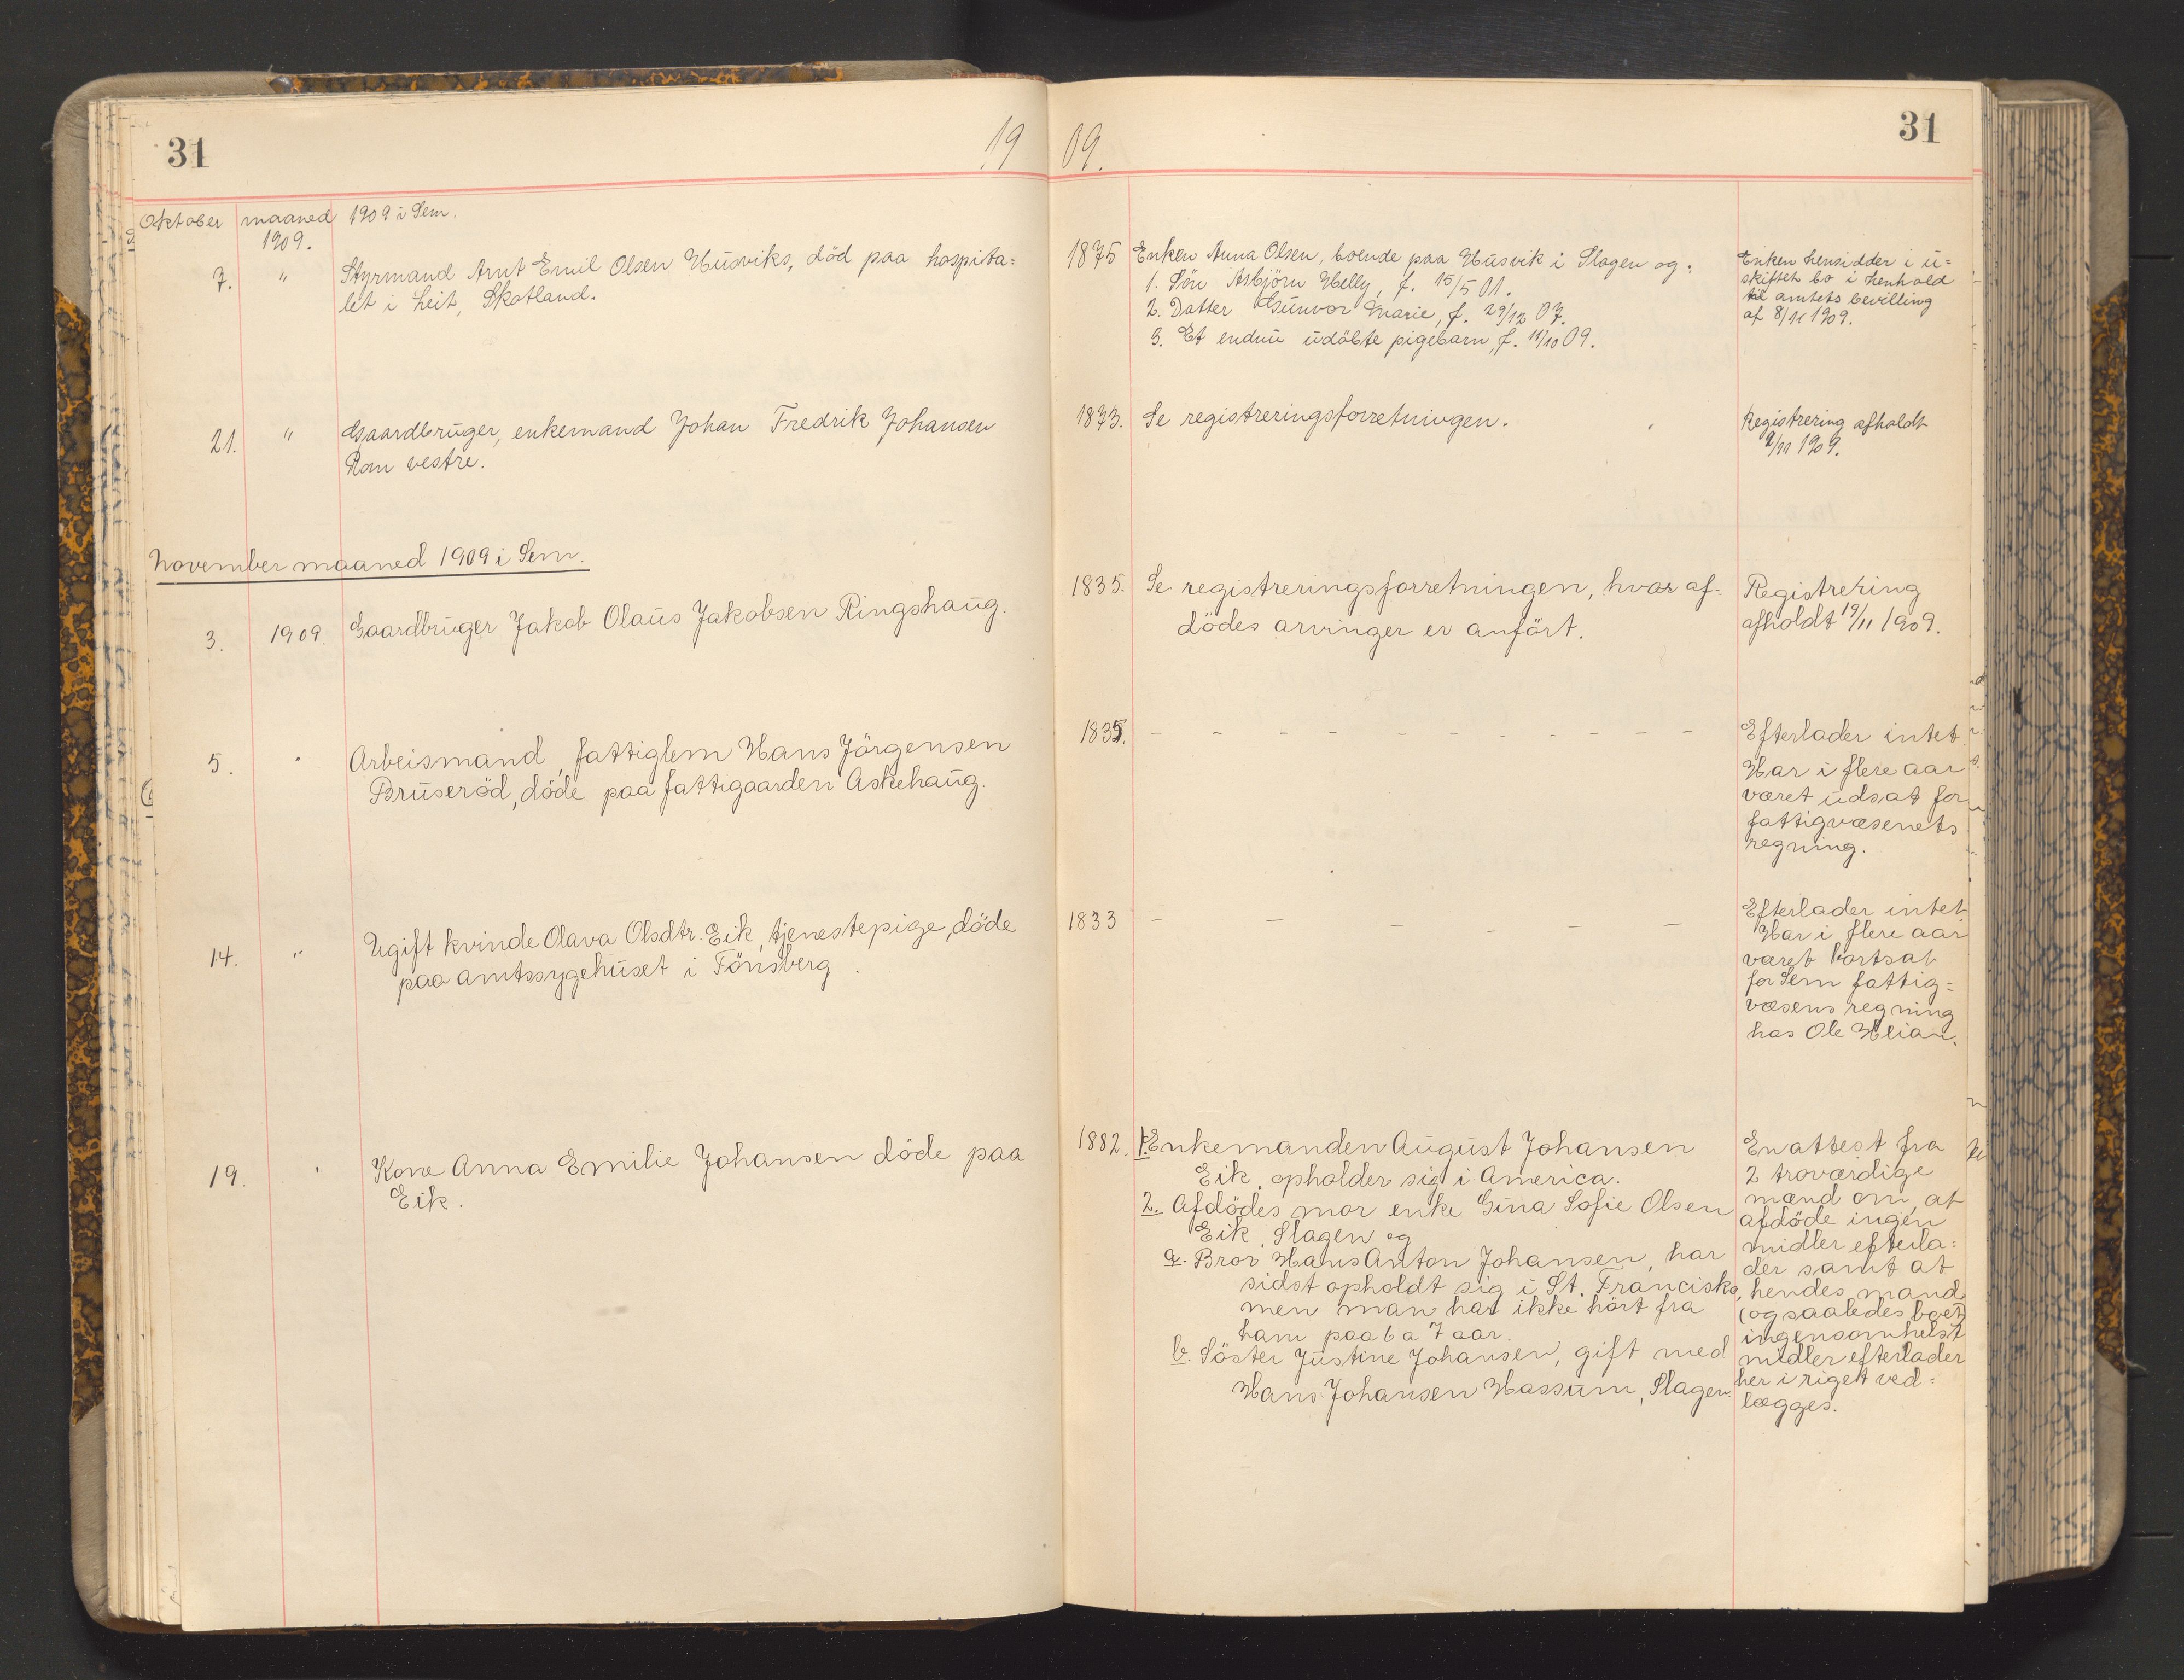 31
19 09.
31
Oktober maaned 1909 i Sem.
1909.
7. " Styrmand Arnt Emil Olsen Husviks, död paa hospita=
let i Leit, Skotland.
1875 Enken Anna Olsen, boende paa Husvik i Slagen og:
1. Sön Asbjörn Helly, f. 15/5 01.
2. Datter Gunvor Marie, f. 29/12 07.
3. Et endnu udöbte pigebarn, f. 11/10 09.
Enken hensidder i u=
skiftet bo i henhold
til amtets bevilling
af 8/11 1909.
21. " Gaardbruger, enkemand Johan Fredrik Johansen
Rom vestre.
1873. Se registreringsforretningen.
Registrering afholdt
2/11 1909.
November maaned 1909 i Sem.
3. 1909 Gaardbruger Jakob Olaus Jakobsen Ringshaug.
1835. Se registreringsforretningen, hvor af=
dödes arvinger er anfört.
Registrering
afholdt 19/11 1909.
5. " Arbeismand, fattiglem Hans Jörgensen
Bruseröd, döde paa fattigaarden Askehaug.
1835. - - - - - - - - - - -
Efterlader intet.
Har i flere aar
været udsat for
fattigvæsenets
regning.
14. " Ugift kvinde Olava Olsdtr. Eik, tjenestepige, döde
paa amtssygehuset i Tönsberg.
1833 - - - - - -
Efterlader intet.
Har i flere aar
været bortsat
for Sem fattig=
væsens regning
hos Ole Hlian.
19. " Kone Anna Emilie Johansen döde paa
Eik.
1882. 1. Enkemanden August Johansen
Eik, opholder sig i America.
2. Afdödes mor enke Gina Sofie Olsen
Eik, Slagen og
a. Bror Hans Anton Johansen, har
sidst opholdt sig i St. Francisko,
men man har ikke hört fra
ham paa 6 a 7 aar.
b. Söster Justine Johansen, gift med
Hans Johansen Hassum, Slagen.
En attest fra
2 troværdige
mænd om, at
afdöde ingen
midler efterla=
der samt at
hendes mand
(og saaledes boet)
ingensomhelst
midler efterlader
her i riget ved=
lægges.